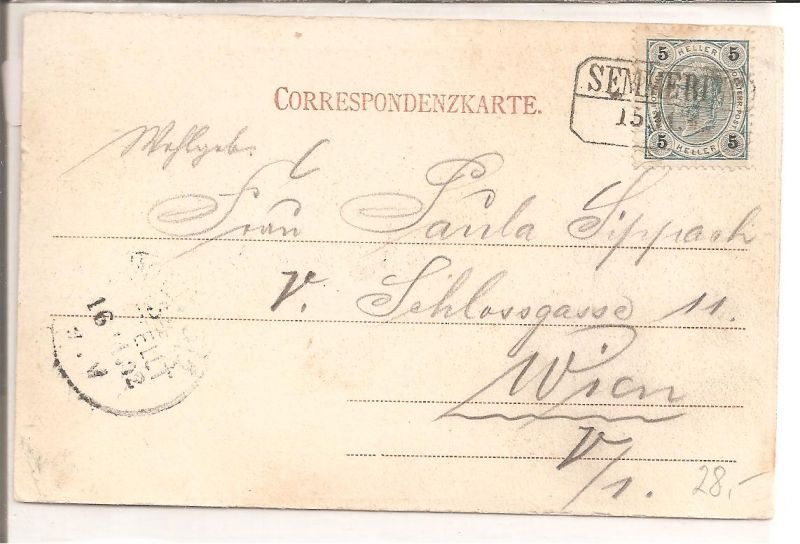 5 HELLER 5
SEMMERING
15
5 HELLER 5
CORRESPONDENZKARTE.
Wohlgeb.
Frau Paula Sippach
V. Schlossgasse 11.
Wien
V/1.
16
28,-